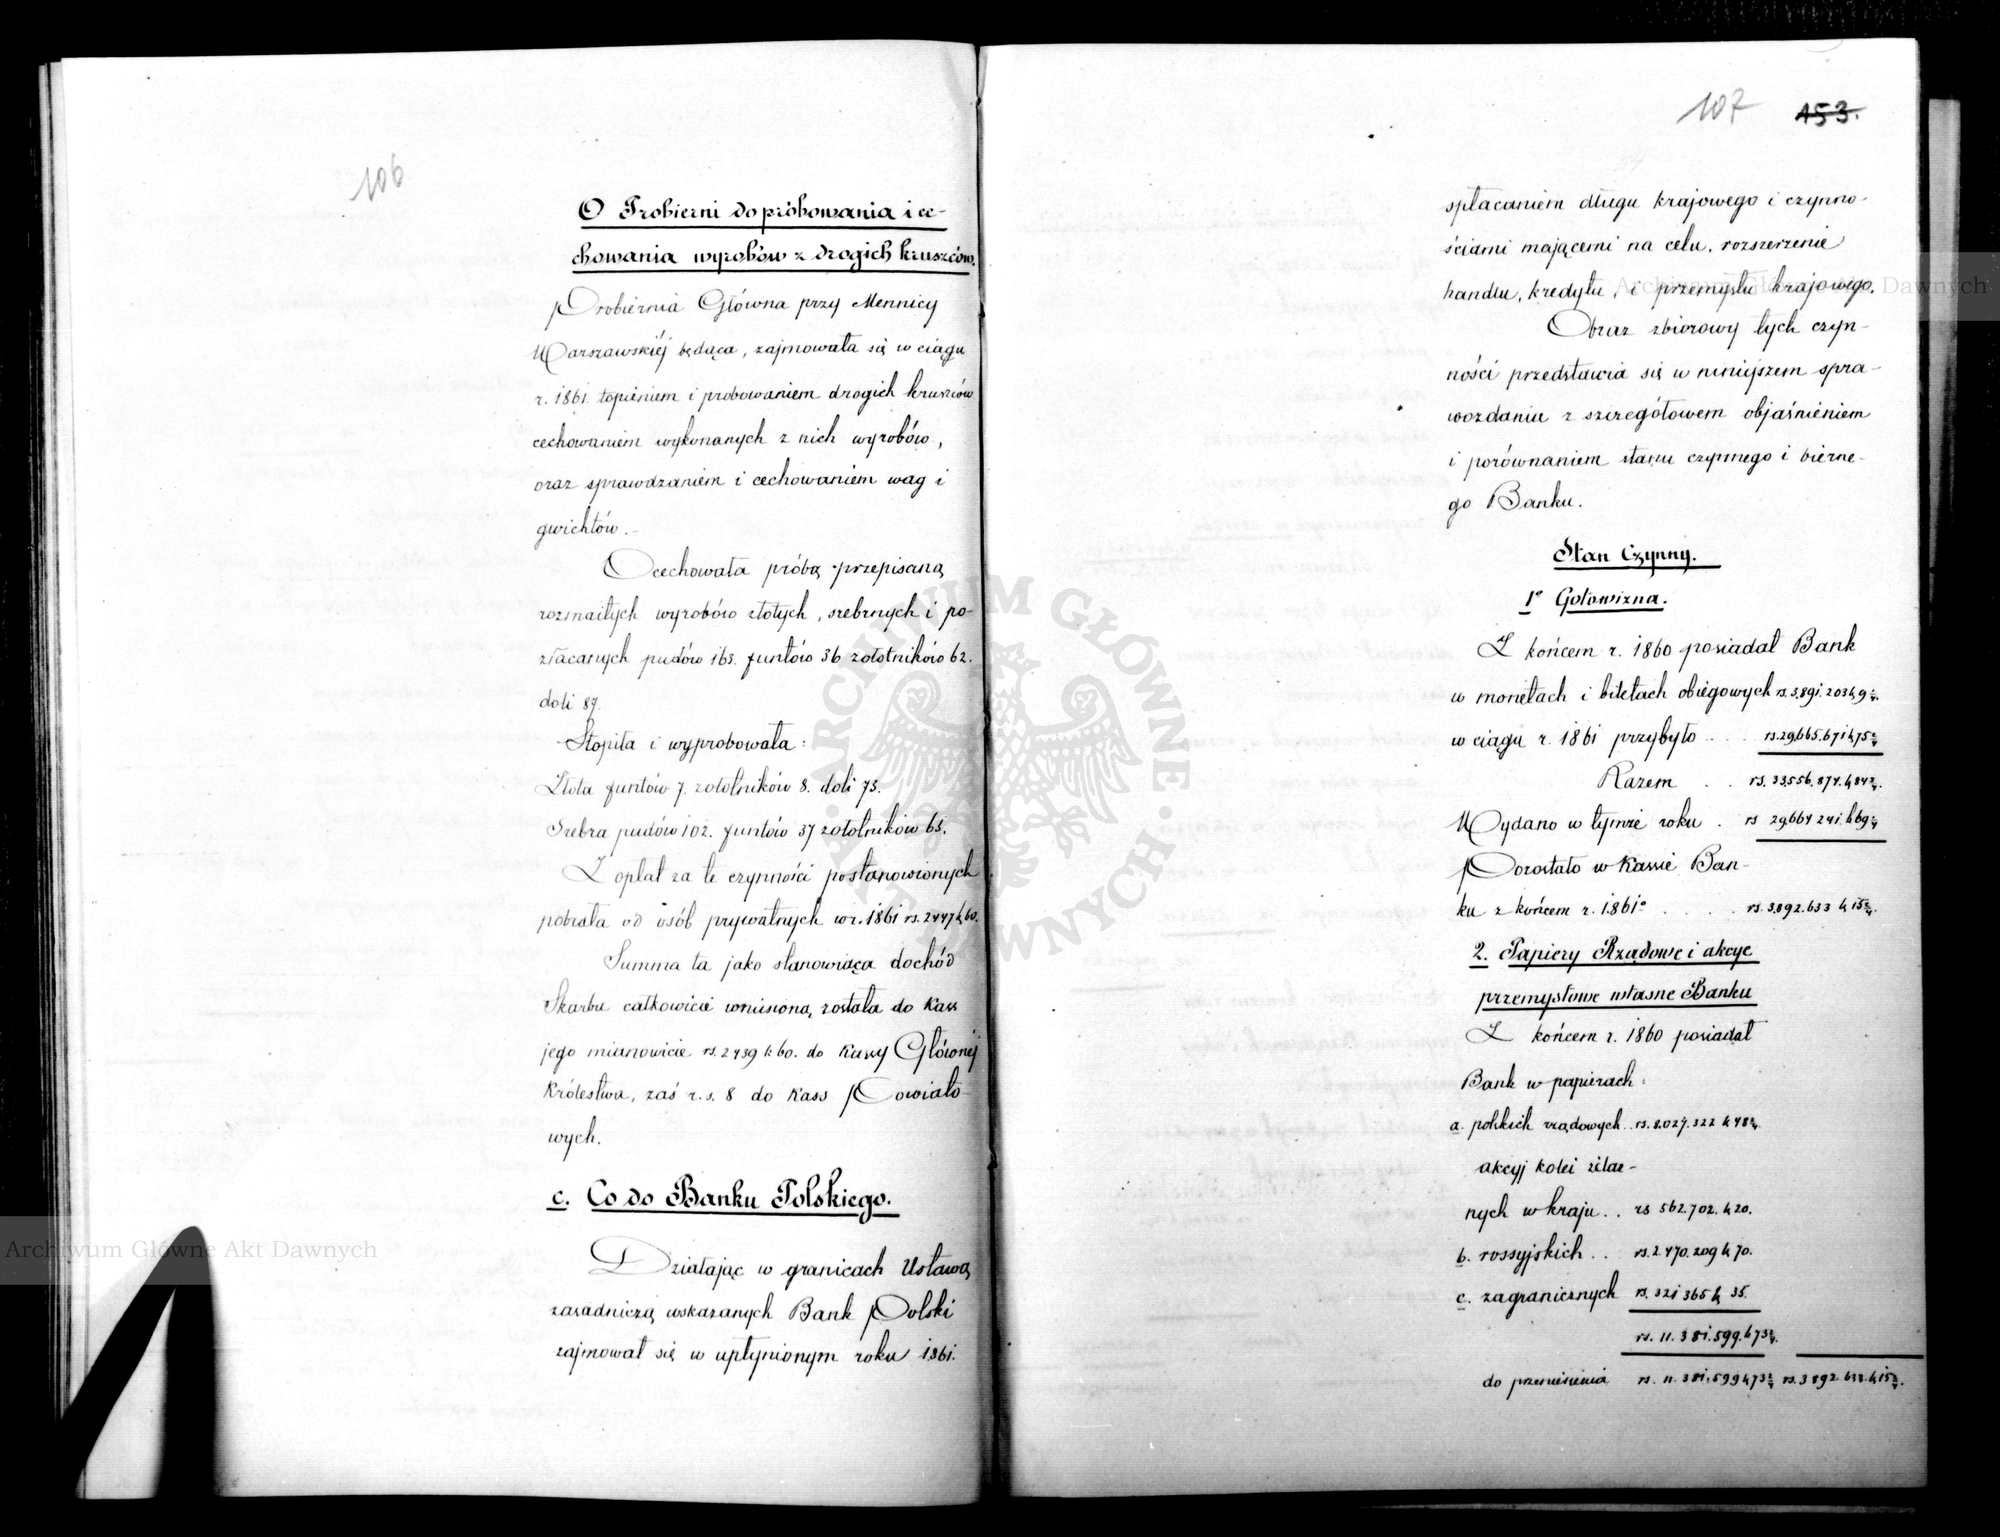 106
O Probierni do próbowania i ce-
chowania wyrobów z drogich kruszców.
Probiernia Główna przy Mennicy
Warszawskiéj będąca, zajmowała się w ciągu
r. 1861 topieniem i probowaniem drogich kruszców
cechowaniem wykonanych z nich wyrobów,
oraz sprawdzaniem i cechowaniem wag i
gwichtów.-
Ocechowała próbą przepisaną
rozmaitych wyrobów złotych, srebrnych i po-
złacanych pudów 163. funtów 36 zołotników 62.
doli 87.
Stopiła i wyprobowała:
Złota funtów 7. zołotników 8. doli 73.
Srebra pudów 102. funtów 37 zołotników 63.
Z opłat za te czynności postanowionych
pobrała od osób prywatnych w r. 1861 rs. 2447 k 60.
Summa ta jako stanowiąca dochód
Skarbu całkowicie wniesioną została do Kass
jego mianowicie rs. 2439 k 60. do Kassy Głównéj
Królestwa, zaś r.s. 8 do Kass Powiato-
wych.
c. Co do Banku Polskiego.
Działając w granicach Ustawą
zasadniczą wskazanych Bank Polski
zajmował się w upłynionym roku 1861.
107 153.
spłacaniem długu krajowego i czynno-
ściami mającemi na celu, rozszerzenie
handlu, kredytu, i przemysłu krajowego.
Obraz zbiorowy tych czyn-
ności przedstawia się w niniejszem spra-
wozdaniu z szczegółowem objaśnieniem
i porównaniem stanu czynnego i bierne-
go Banku.
Stan Czynny.
1° Gotowizna.
Z końcem r. 1860 posiadał Bank
w monetach i biletach obiegowych rs. 3.891.203 k 9 2/4.
w ciągu r. 1861 przybyło .... rs. 29.665.671 k 75 2/4
Razem .. rs. 33.556.874. k 84 3/4.
Wydano w tymże roku . rs 29.664 241. k 69 2/4
Pozostało w Kassie Ban-
ku z końcem r. 1861° .... rs. 3.892.633 k 15 2/4.
2. Papiery Rządowe i akcye
przemysłowe własne Banku
Z końcem r. 1860 posiadał
Bank w papierach:
a. polskich rządowych.. rs. 8.027.322 k 48 2/4.
akcyj kolei żelaz-
nych w kraju.. rs 562.702. k 20.
b. rossyjskich.. rs. 2.470.209 k 70.
c. zagranicznych rs. 321 365 k 35.
rs. 11.381.599. k 73 2/4.
do przeniesienia rs. 11.381.599 k 73 2/4 rs. 3 892. 633. k 15 2/4.
Archiwum Główne Akt Dawnych
Archiwum Główne Akt Dawnych
ARCHIWUM GŁÓWNE AKT DAWNYCH